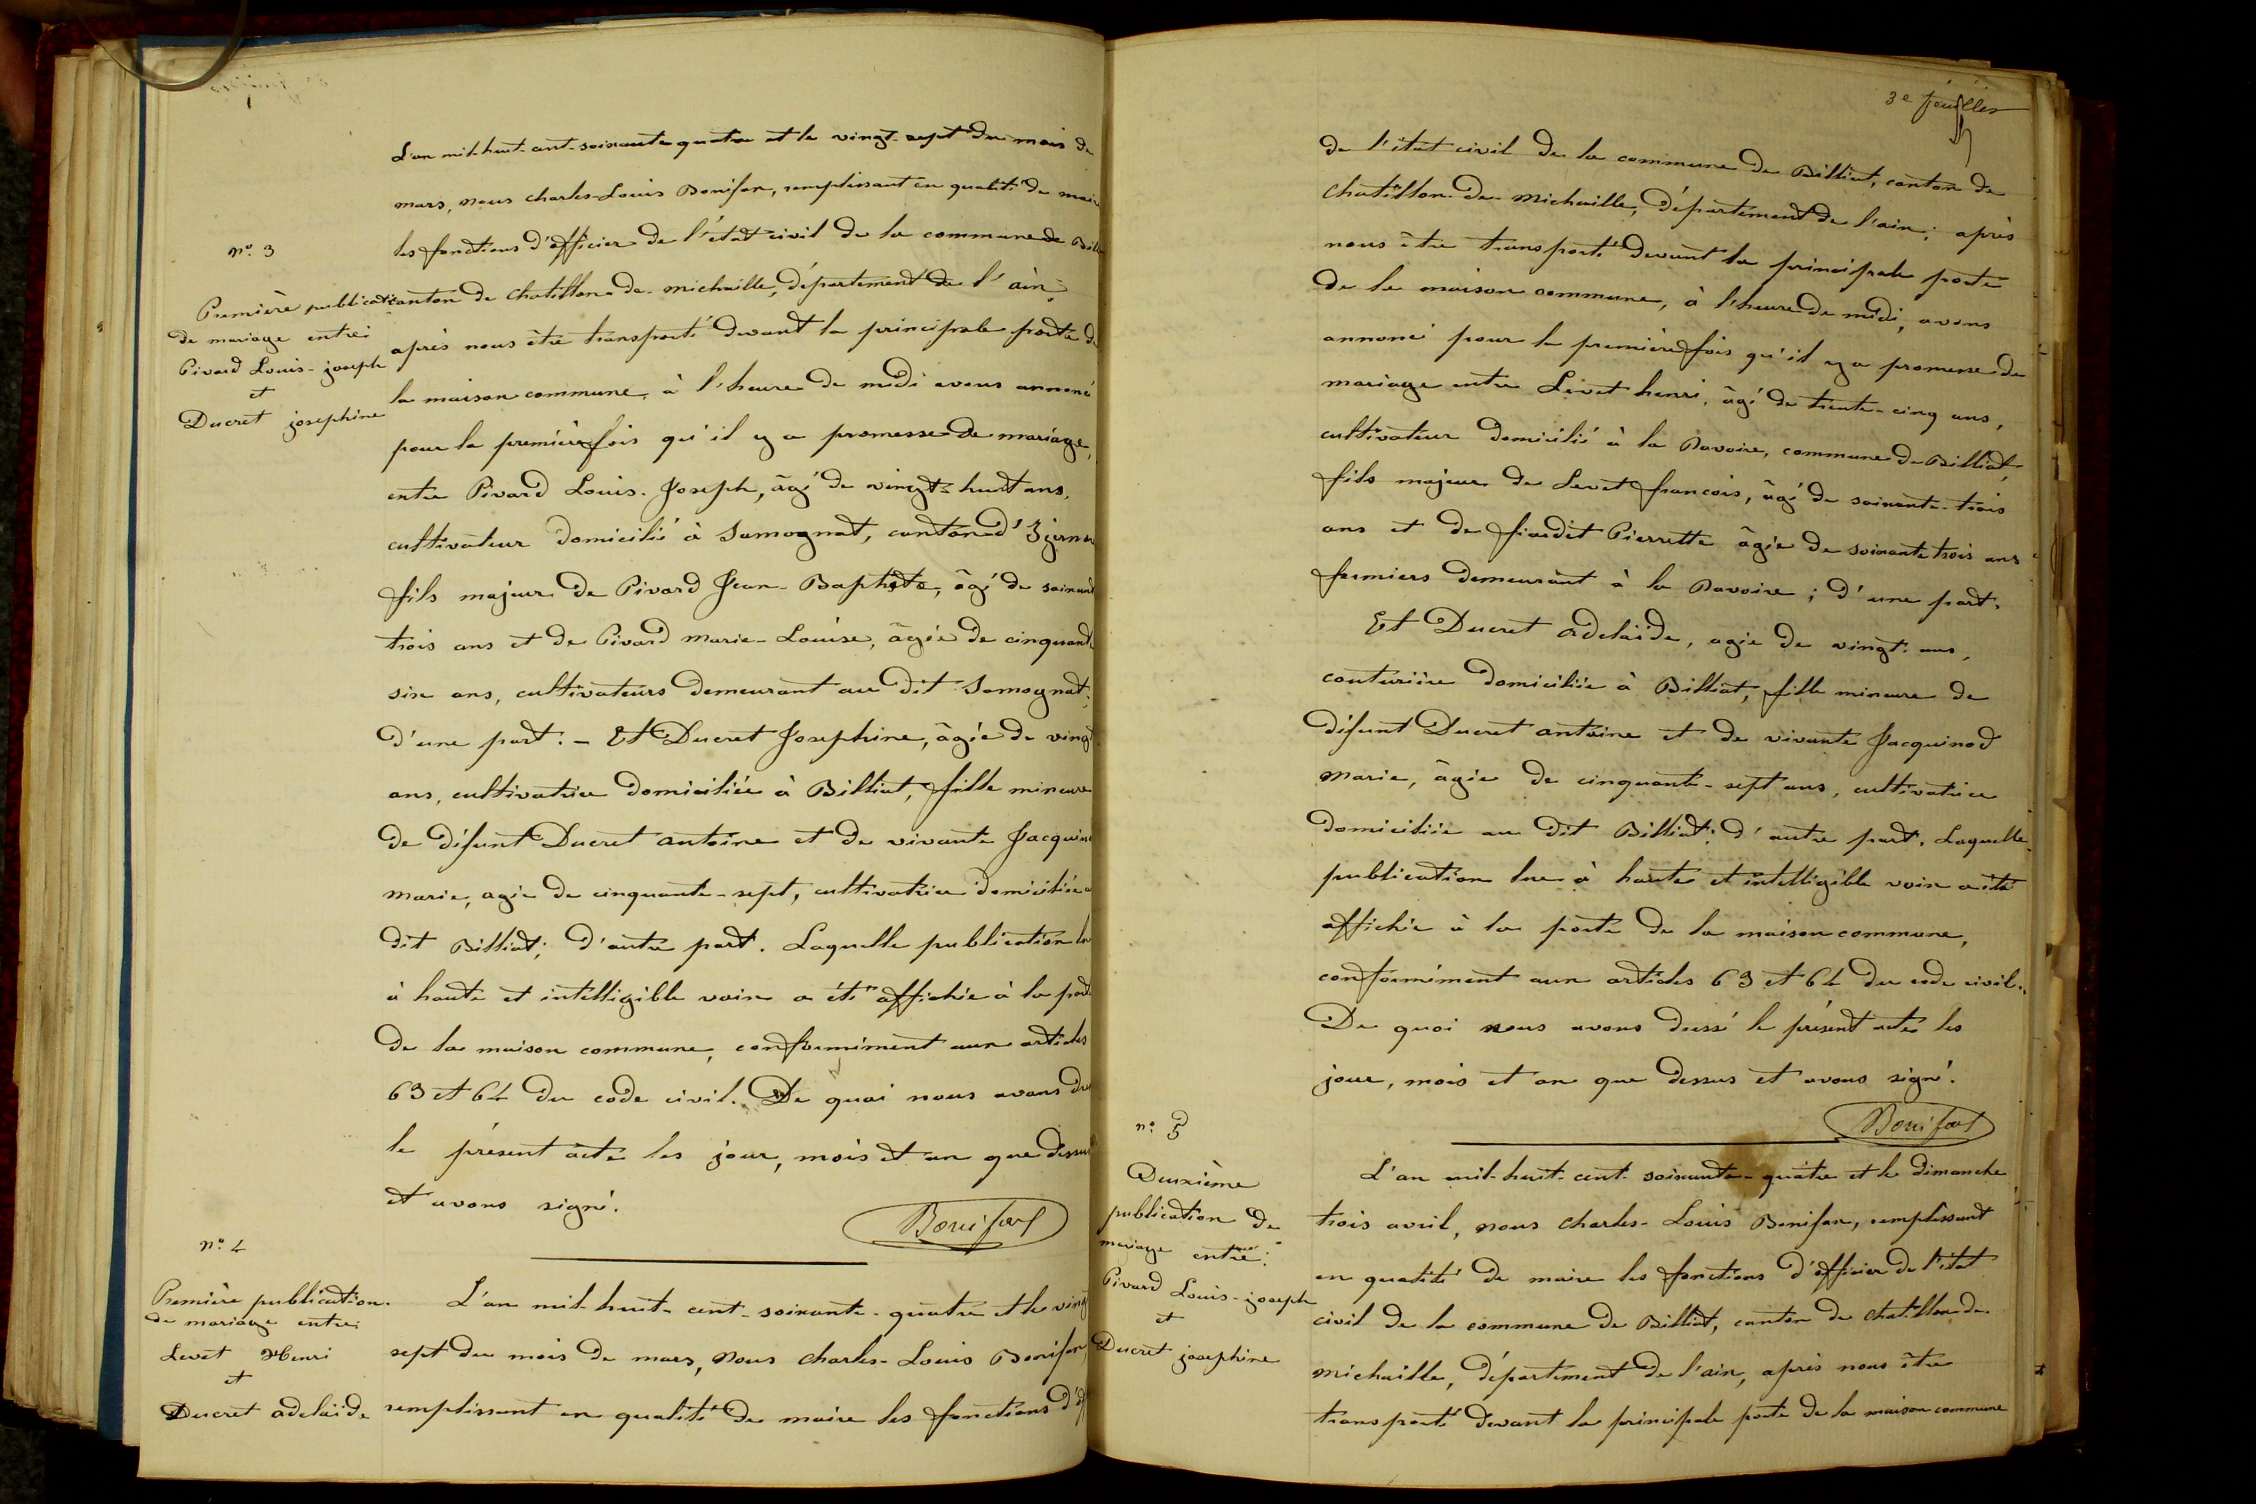 L'an mil-huit-cent-soixante quatre et le vingt-sept du mois de
mars, nous charles-Louis Bonifax, remplissant en qualité de maire
n.o 3
les fonctions d'officier de l'état civil de la commune de Bill
Première publicati
canton de chatillon-de-michaille, département de l'ain;
de mariage entre:
après nous être transporté devant la principale porte de
Pivard Louis-joseph
et
la maison commune, à l'heure de midi avons annoncé
Ducret josephine
pour la première fois qu'il y a promesse de mariage,
entre Pivard Louis-Joseph, âgé de vingt-huit ans,
cultivateur domicilié à Samognat, canton d'Izernor
fils majeur de Pivard Jean-Baptiste, âgé de soixant
trois ans et de Pivard marie-Louise, âgée de cinquant
six ans, cultivateurs demeurant au dit Samognat;
d'une part. - Et Ducret Josephine, âgée de vingt
ans, cultivatrice domiciliée à Billiat, fille mineure
de défunt Ducret antoine et de vivante Jacquino
marie, agée de cinquante-sept, cultivatrice domiciliée a
dit Billiat; d'autre part. Laquelle publication lu
à haute et intelligible voix a été affichée à la port
de la maison commune, conformément aux articles
63 et 64 du code civil. De quoi nous avons dre
le présent acte les jour, mois et an que dessus
et avons signé.
Bonifax
n.o 4
Première publication
de mariage entre:
Levet Henri
et
Ducret adelaïde
L'an mil-huit-cent-soixante-quatre et le vingt
sept du mois de mars, nous charles-Louis Bonifax,
remplissant en qualité de maire les fonctions d'of
3e feuillet
de l'état civil de la commune de Billiat, canton de
chatillon-de-michaille, département de l'ain; après
nous être transporté devant la principale porte
de la maison commune, à l'heure de midi, avons
annoncé pour la première fois qu'il y a promesse de
mariage entre Levet henri, âgé de trente-cinq ans,
cultivateur domicilié à la Pavoire, commune de Billiat,
fils majeur de Levet francois, âgé de soixante-trois
ans et de Pierrette âgée de soixante trois ans
fermiers demeurant à la Pavoire; d'une part.
Et Ducret adelaïde, agée de vingt-ans,
couturière domiciliée à Billiat, fille mineure de
défunt Ducret antoine et de vivante Jacquinod
marie, âgée de cinquante-sept ans, cultivatrice
domiciliée au dit Billiat; d'autre part. Laquelle
publication lue à haute et intelligible voix a été
affichée à la porte de la maison commune,
conformément aux articles 63 et 64 du code civil.
De quoi nous avons dressé le présent acte les
jour, mois et an que dessus et avons signé.
Bonifax
n.o 5
Deuxième
publication de
mariage entre:
Pivard Louis-joseph
et
Ducret josephine
L'an mil-huit-cent-soixante-quatre et le dimanche
trois avril, nous charles-Louis Bonifax, remplissant
en qualité de maire les fonctions d'officier de l'état
civil de la commune de Billiat, canton de chatillon de
michaille, département de l'ain, après nous être
transporté devant la principale porte de la maison commune